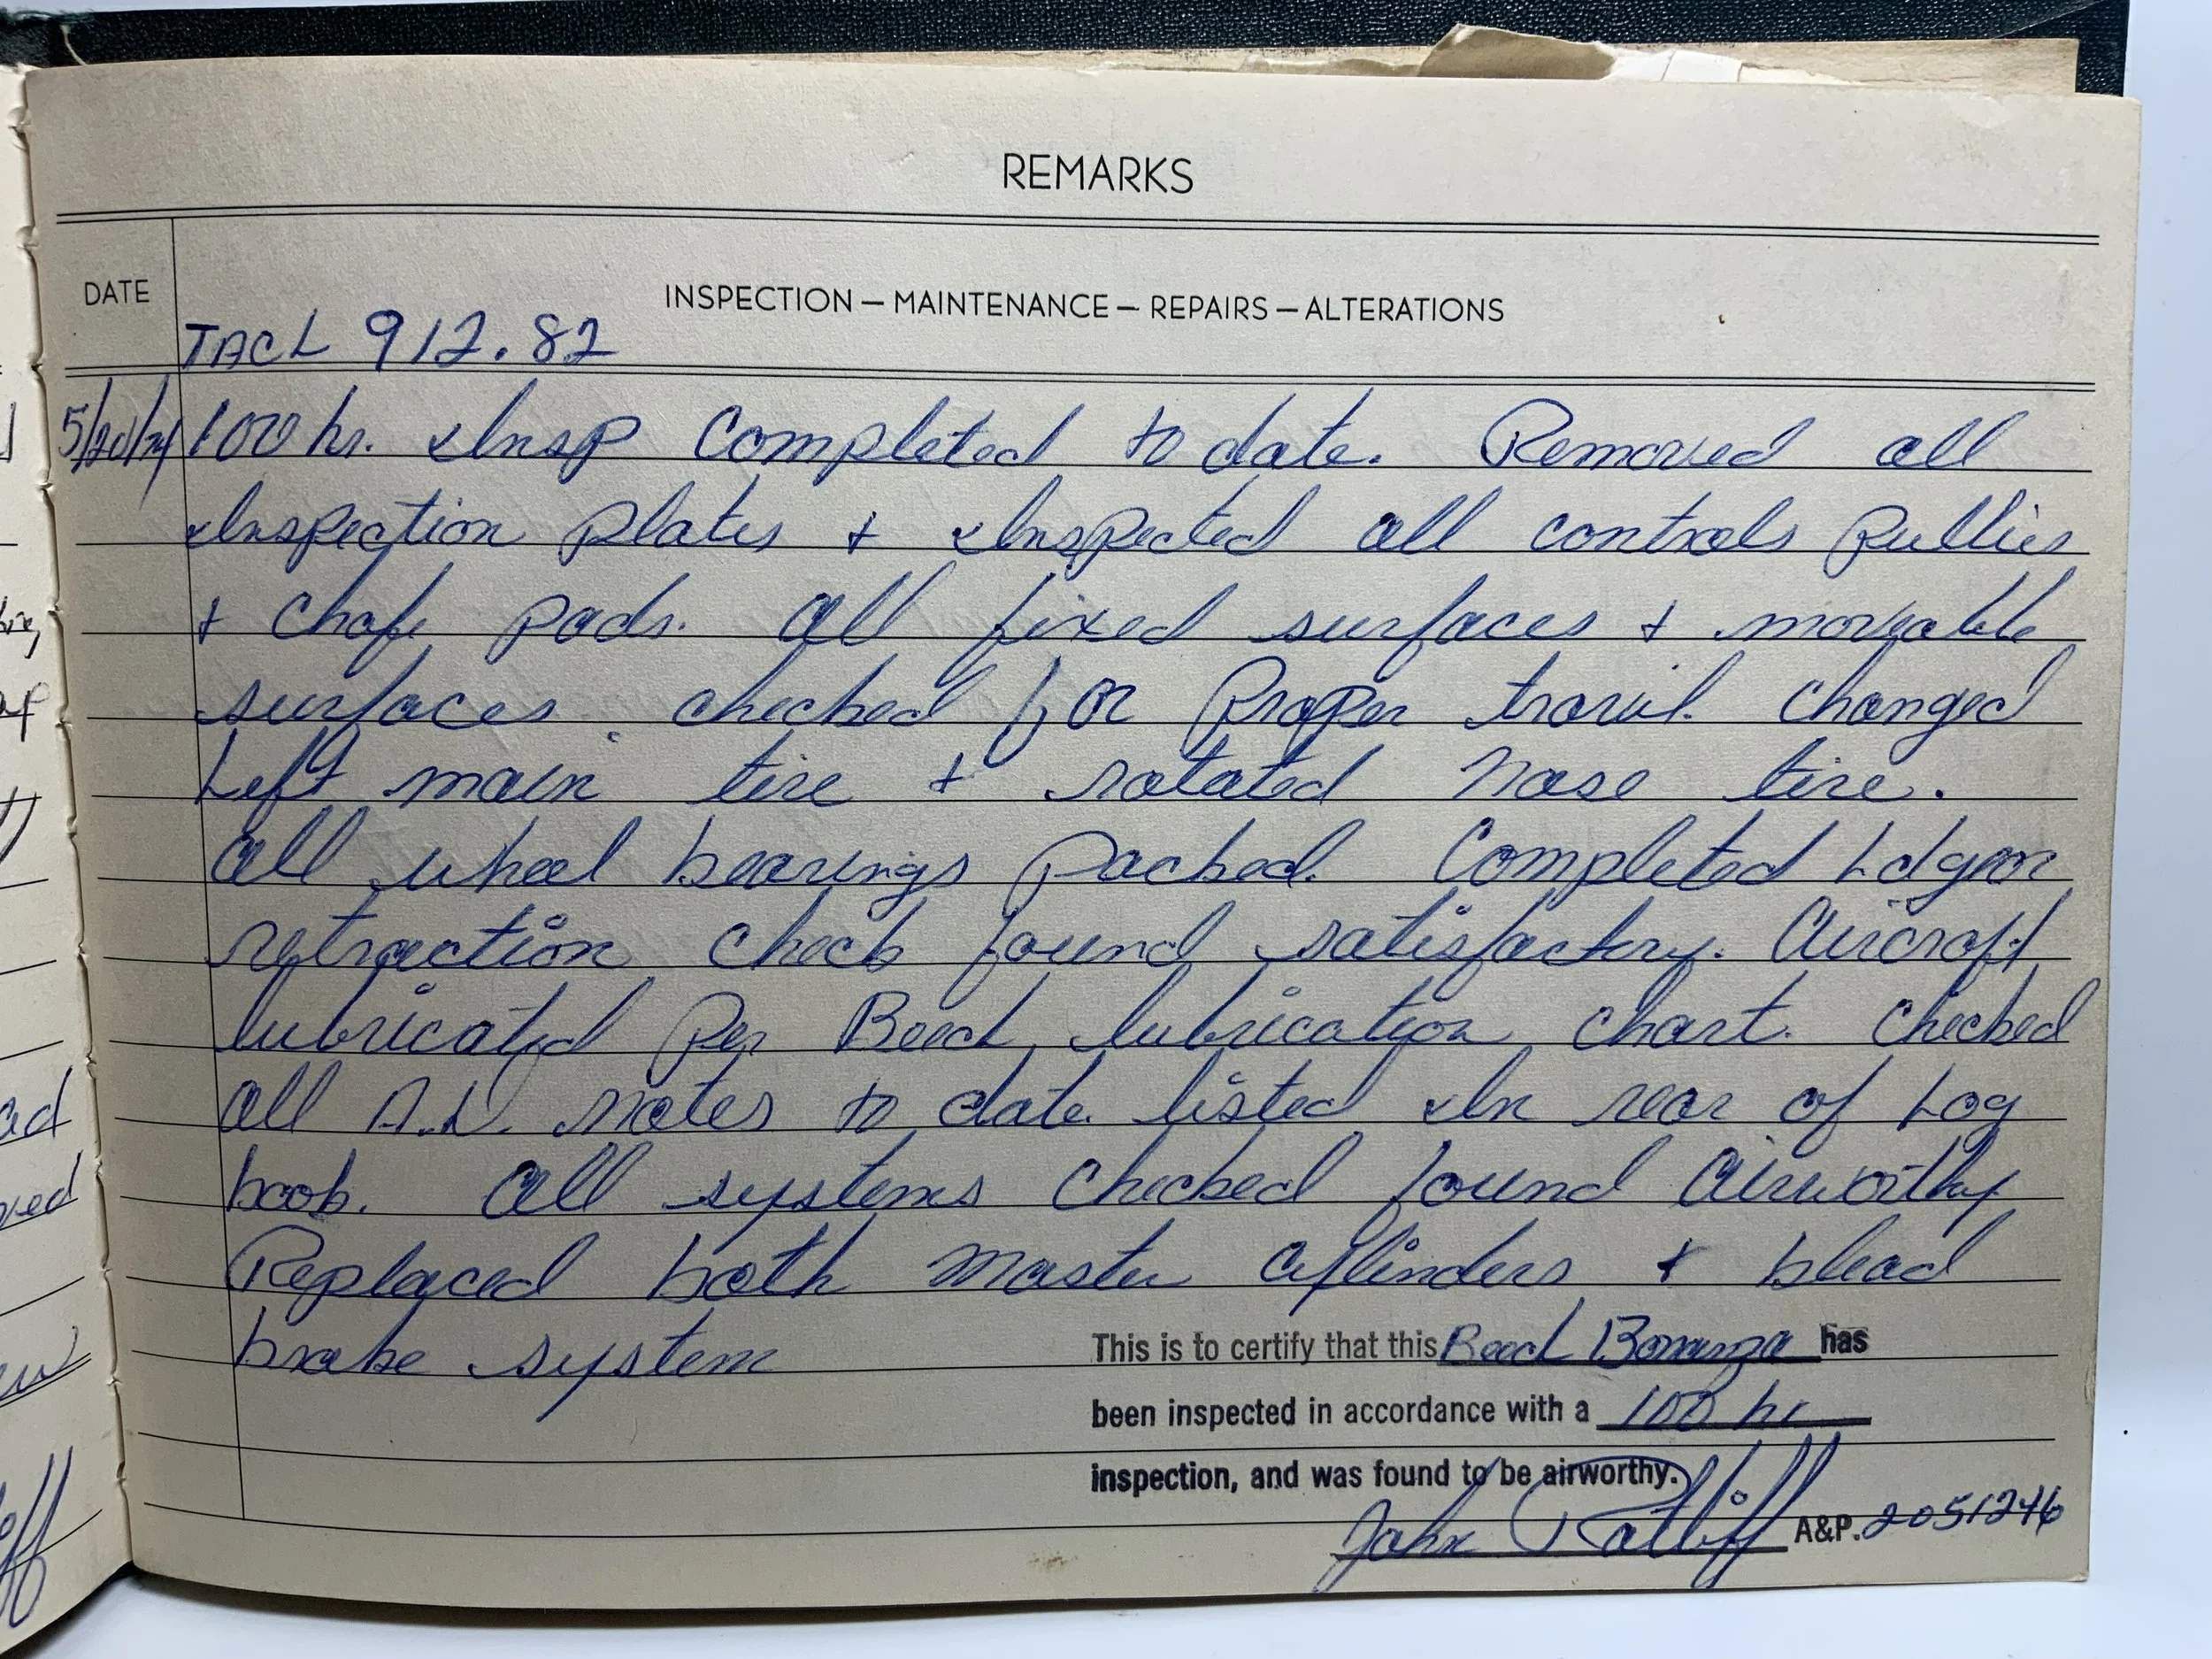 REMARKS
DATE
INSPECTION — MAINTENANCE — REPAIRS — ALTERATIONS
TACH 912.82
5/20/74 100 hr. Insp Completed to date. Removed all
Inspection plates + Inspected all controls Pullies
+ Chafe pads. All fixed surfaces + moveable
surfaces checked for Proper travil. Changed
Left main tire + rotated nose tire.
All wheel bearings packed. Completed Ldgear
retraction check found satisfactory. Aircraft
lubricated Per Beech lubrication chart. Checked
all A.D. notes to date listed In rear of Log
book. All systems checked found Airworthy
Replaced both Master Cylinders + blead
brake system
This is to certify that this Beech Bonanza has
been inspected in accordance with a 100 hr
inspection, and was found to be airworthy.
John Ratliff A&P. 2051246
ad
ved